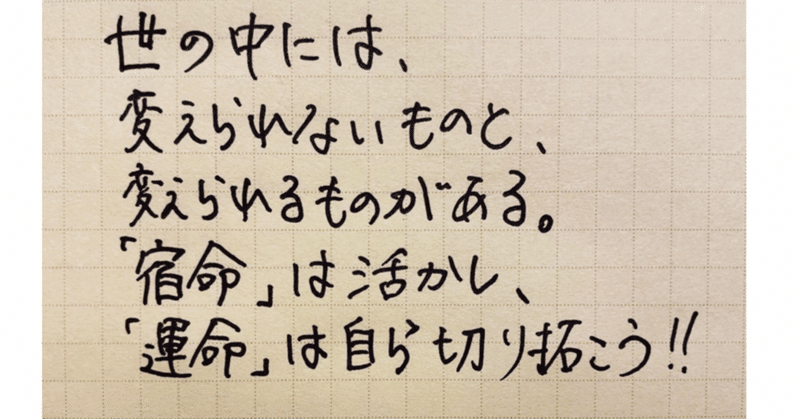 世の中には、
変えられないものと、
変えられるものがある。
「宿命」は活かし、
「運命」は自ら切り拓こう!!